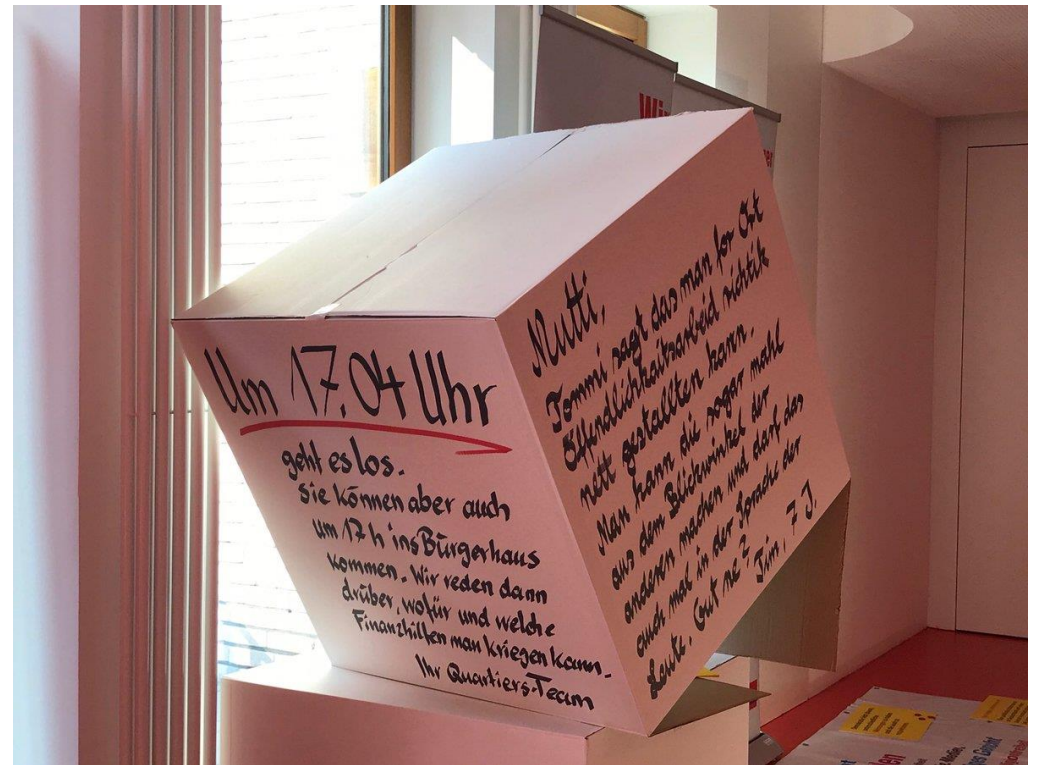 Um 17.04 Uhr
geht es los.
Sie können aber auch
um 17 h ins Bürgerhaus
kommen. Wir reden dann
drüber, wofür und welche
Finanzhilfen man kriegen kann.
Ihr Quartiers-Team
Mutti,
Tommi sagt das man for Ort
Öffendlichkaitsarbeid richtik
nett gestallten kann.
Man kann die sogar mahl
aus dem Blickwinkel der
anderen machen und darf das
auch mal in der Sprache der
Leute. Gut ne?
Tin, 7 J.